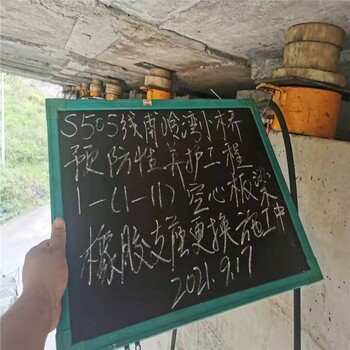 S505线甫哈湾小桥
预防性养护工程
1-(1-11)空心板梁
橡胶支座更换施工中
2021.9.17